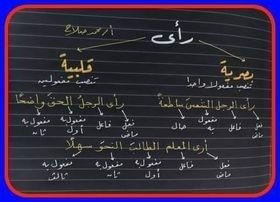 رأى
أ.محمد صلاح
بصرية
قلبية
تنصب مفعولا واحدا
تنصب مفعولين
رأى الرجل الشمس ساطعة
رأى الرجل الحق واضحا
فعل ماض فاعل مفعول به حال
فعل ماض فاعل مفعول به أول مفعول به ثان
أرى المعلم الطالب النحو سهلا
فعل ماض فاعل مفعول به أول مفعول به ثان مفعول به ثالث